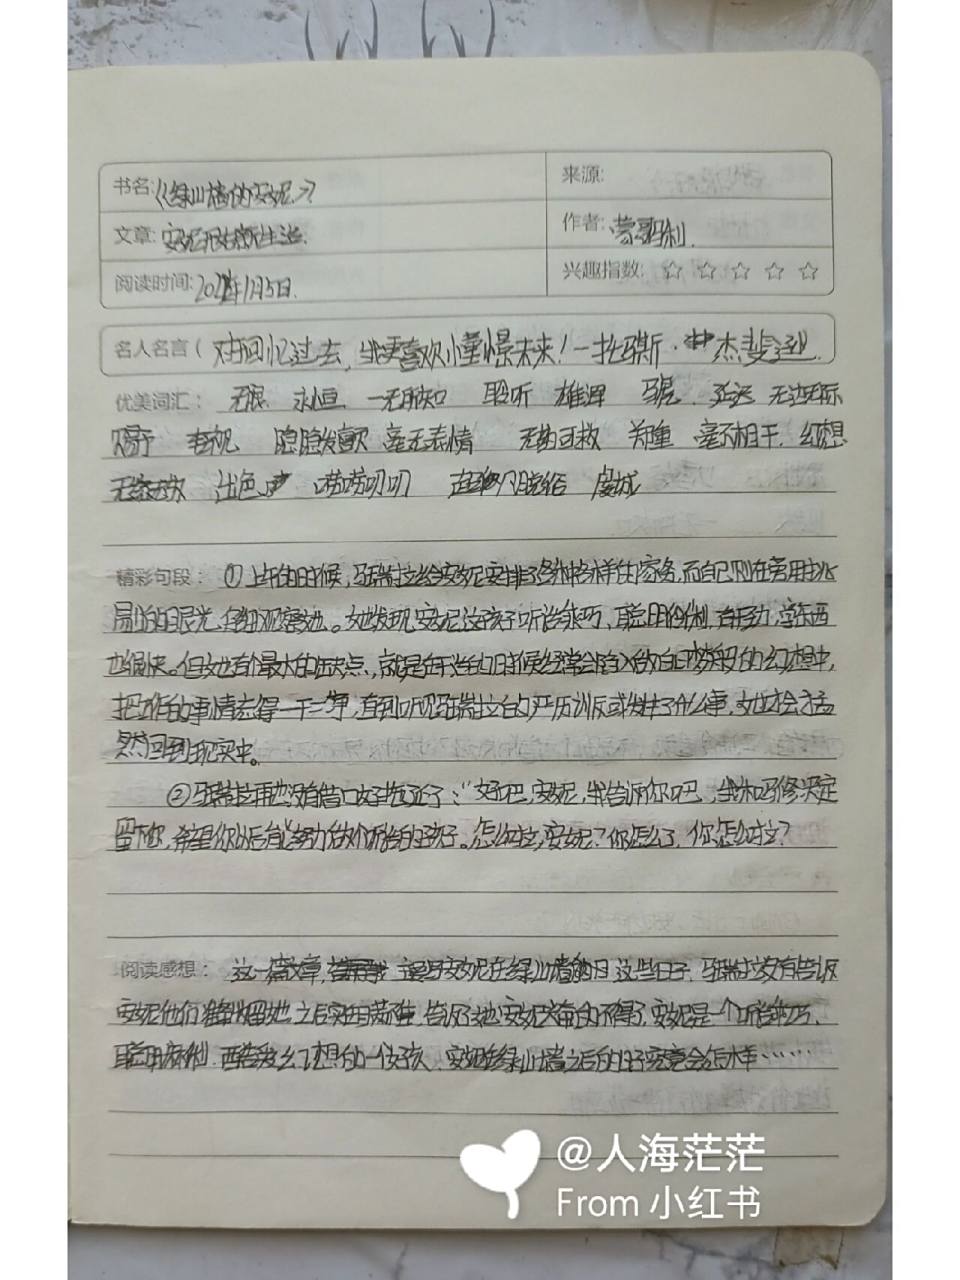 书名:《绿山墙的安妮》
来源:
文章: 安妮的新生活.
作者: 蒙哥玛利.
阅读时间: 2021年1月5日.
兴趣指数: ☆ ☆ ☆ ☆ ☆
名人名言( 对于回忆过去,我更喜欢憧憬未来!—托马斯·杰斐逊.
优美词汇: 无垠 永恒 一无所知 聆听 雄浑 延迟 无边无际
隐隐发颤 毫无表情 无药可救 郑重 毫不相干. 幻想
出色 唠唠叨叨 虔诚
精彩句段: ①上午的时候,马瑞拉给安妮安排了各种各样的家务,而自己则在旁用挑
剔的眼光,仔细观察她。她发现,安妮这孩子听话乖巧,聪明伶俐,有活力,学东西
也很快。但她也有个最大的缺点,就是在干活的时候经常会陷入做白日梦般的幻想中,
把工作的事情忘得一干二净,直到听见马瑞拉的严厉训斥或发生了什么事,她才会猛
然回到现实中。
②马瑞拉再也没有借口好拖延了:“好吧,安妮,我告诉你吧,我和马修决定
留下你,希望你以后能努力做个听话的孩子。怎么啦,安妮?你怎么了,你怎么啦?
阅读感想: 这一篇文章, 主要写安妮在绿山墙的 这些日子,马瑞拉没有告诉
安妮他们 留她,之后实在 告诉了她,安妮兴奋的不得了,安妮是一个听话乖巧,
聪明伶俐, 爱幻想的一个孩子, 安妮在绿山墙之后的日子究竟会怎样……
@人海茫茫
From 小红书